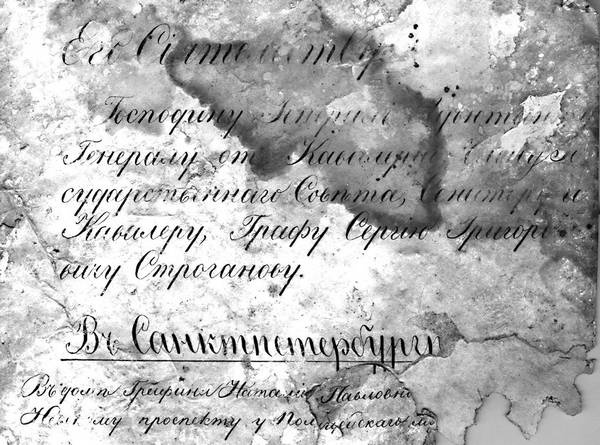 Его Сіятельству
Господину Генералъ Адъютанту
Генералу отъ Кавалеріи Члену Го
сударственнаго Совѣта, Сенатору и
Кавалеру, Графу Сергію Григорь
евичу Строганову.
Въ Санктпетербургѣ
Въ домѣ Графини Наталіи Павловны
Невскому проспекту у Полицейскаго мо